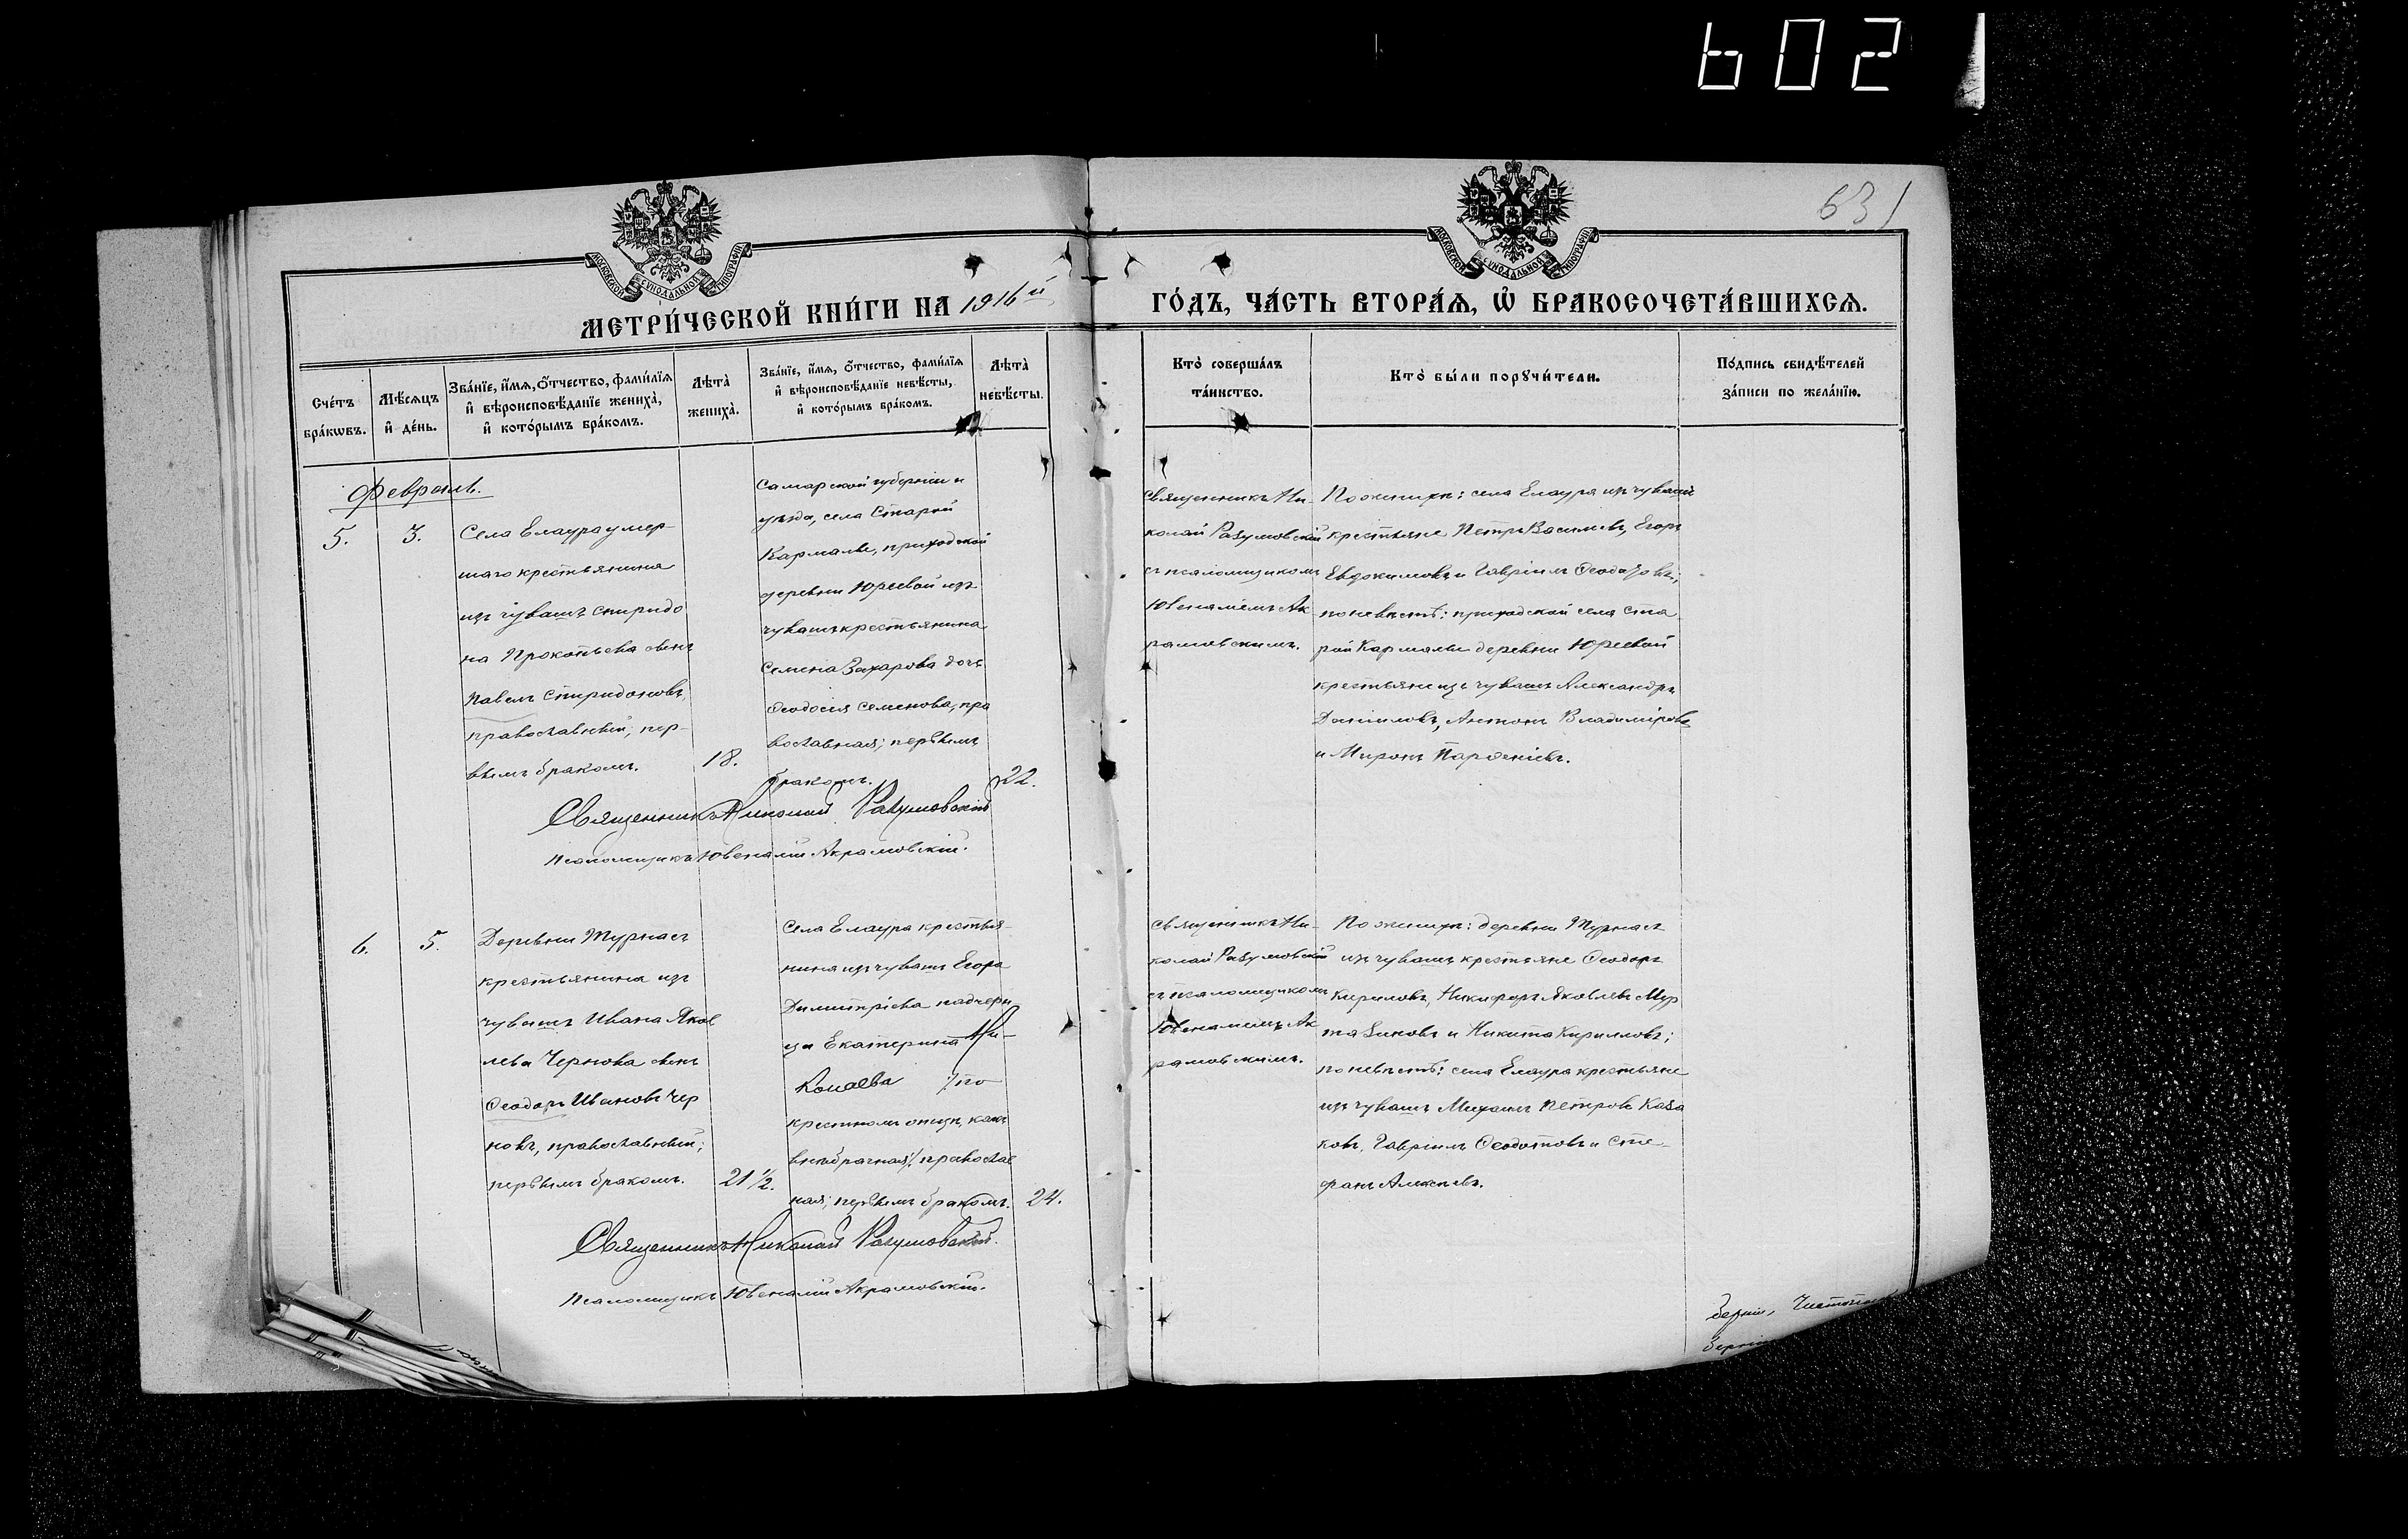 602
631
МОСКОВСКОЙ СѴНОДАЛЬНОЙ ТИПОГРАФІИ
МОСКОВСКОЙ СѴНОДАЛЬНОЙ ТИПОГРАФІИ
МЕТРИ́ЧЕСКОЙ КНИ́ГИ НА 1916й
ГО́ДЪ, ЧА́СТЬ ВТОРА́Ѧ, Ѡ҆ БРАКОСОЧЕТА́ВШИХСѦ.
Сче́тъ
бра́кѡвъ.
Мѣ́сѧцъ
и҆ де́нь.
Зва́нїе, и҆́мѧ, ѻ҆́тчество, фами́лїѧ
и҆ вѣроисповѣ́данїе жениха̀,
и҆ кото́рымъ бра́комъ.
Лѣта̀
жениха̀.
Зва́нїе, и҆́мѧ, ѻ҆́тчество, фами́лїѧ
и҆ вѣроисповѣ́данїе невѣ́сты,
и҆ кото́рымъ бра́комъ.
Лѣта̀
невѣ́сты.
Кто̀ соверша́лъ
та́инство.
Кто̀ бы́ли порꙋчи́тели.
По́дпись свидѣ́телей
за́писи по жела́нїю.
Февраль.
5.
3.
Села Елаура умер-
шаго крестьянина
изъ чувашъ Спиридо
на Прокопьева сынъ
Павелъ Спиридоновъ,
православный; пер-
вымъ бракомъ.
18.
Самарской губерніи и
уѣзда, села Старой
Кармалы, приходской
деревни Юреевой изъ
чувашъ крестьянина
Семена Захарова дочь
Ѳеодосія Семенова, пра
вославная; первымъ
бракомъ.
22.
Священникъ Ни-
колай Разумовскій
съ псаломщикомъ
Ювеналіемъ Ак-
рамовскимъ.
По женихѣ: села Елаура изъ чувашъ
крестьяне Петръ Васильевъ, Егоръ
Евдокимовъ и Гавріилъ Ѳеодотовъ;
по невѣстѣ: приходской села Ста
рой Кармалы деревни Юреевой
крестьяне изъ чувашъ Александръ
Даниловъ, Антонъ Владиміровъ
и Миронъ Парѳеніевъ.
Священникъ Николай Разумовскій
Псаломщикъ Ювеналій Акрамовскій.
6.
5.
Деревни Турнасъ
крестьянина изъ
чувашъ Ивана Яков
лева Чернова сынъ
Ѳеодоръ Ивановъ Чер
новъ, православный;
первымъ бракомъ.
21½.
Села Елаура крестья-
нина изъ чувашъ Егора
Димитріева падчери
ца Екатерина Ни-
колаева /по
крестномъ отцѣ, какъ
внѣбрачная/, православ
ная; первымъ бракомъ.
24.
Священникъ Ни-
колай Разумовскій
съ псаломщикомъ
Ювеналіемъ Ак
рамовскимъ.
По женихѣ: деревни Турнасъ
изъ чувашъ крестьяне Ѳеодоръ
Кириловъ, Никифоръ Яковлевъ Мур
тазиновъ и Никита Кирилловъ;
по невѣстѣ: села Елаура крестьяне
изъ чувашъ Михаилъ Петровъ Каза
ковъ, Гавріилъ Ѳеодотовъ и Сте-
фанъ Алексѣевъ.
Священникъ Николай Разумовскій.
Псаломщикъ Ювеналій Акрамовскій.